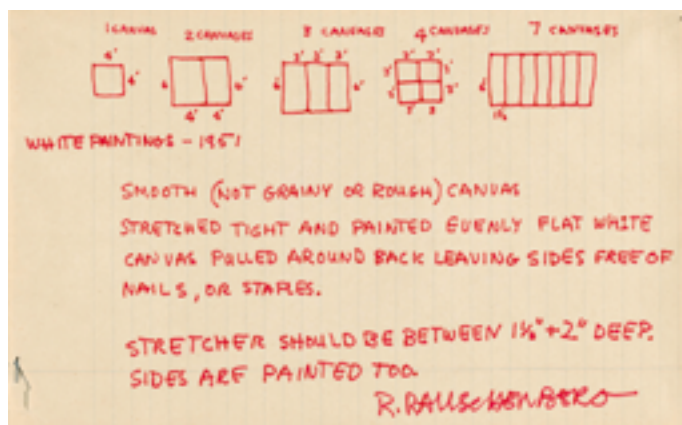 1 CANVAS 2 CANVASES 3 CANVASES 4 CANVASES 7 CANVASES
4' 3' 3' 3' 3' 3'
4' 6' 6' 6' 6' 3' 3' 6'
4' 4' 3' 3
WHITE PAINTINGS – 1951
SMOOTH (NOT GRAINY OR ROUGH) CANVAS
STRETCHED TIGHT AND PAINTED EVENLY FLAT WHITE
CANVAS PULLED AROUND BACK LEAVING SIDES FREE OF
NAILS, OR STAPLES.
STRETCHER SHOULD BE BETWEEN 1½" + 2" DEEP.
SIDES ARE PAINTED TOO.
R. RAUSCHENBERG